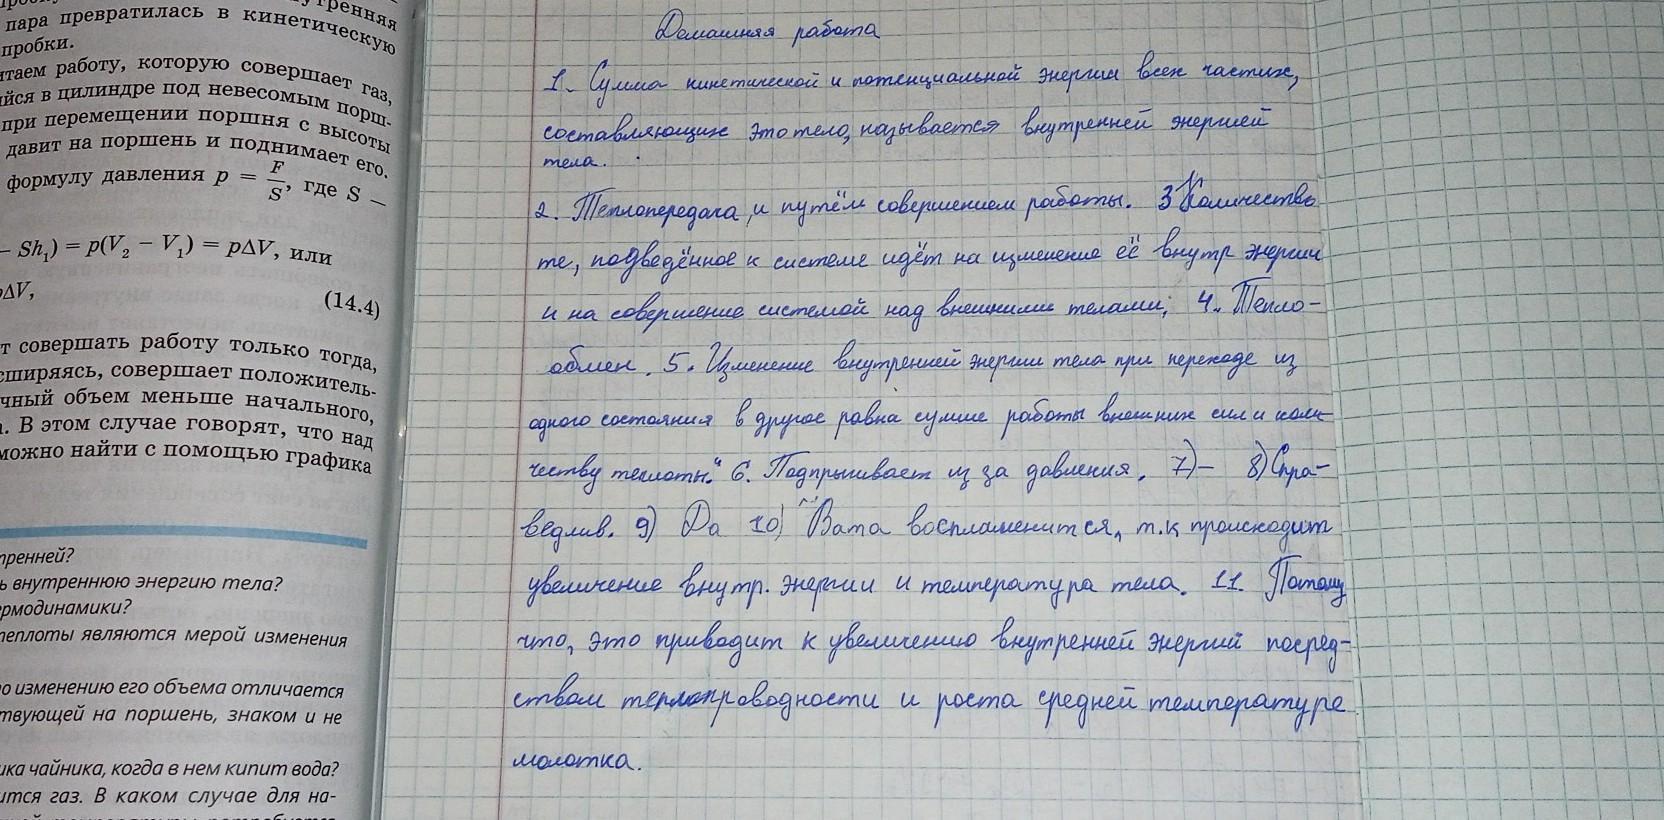 утренняя
пара превратилась в кинетическую
пробки.
таем работу, которую совершает газ,
йся в цилиндре под невесомым порш-
при перемещении поршня с высоты
давит на поршень и поднимает его.
формулу давления p = F/S, где S —
– Sh₁) = p(V₂ – V₁) = pΔV, или
pΔV, (14.4)
т совершать работу только тогда,
сширяясь, совершает положитель-
чный объем меньше начального,
. В этом случае говорят, что над
можно найти с помощью графика
тренней?
ь внутреннюю энергию тела?
ермодинамики?
теплоты являются мерой изменения
о изменению его объема отличается
твующей на поршень, знаком и не
ика чайника, когда в нем кипит вода?
ится газ. В каком случае для на-
Домашняя работа
1. Сумма кинетической и потенциальной энергии всех частиц,
составляющих это тело, называется внутренней энергией
тела.
2. Теплопередача, и путём совершением работы. 3 Количество
те, подведённое к системе идёт на изменение её внутр энергии
и на совершение системой над внешними телами; 4. Тепло-
обмен. 5. Изменение внутренней энергии тела при переходе из
одного состояния в другое равна сумме работы внешних сил и коли
честву теплоты." 6. Подпрыгивает из за давления. 7)– 8) Спра-
ведлив. 9) Да 10) Вата воспламенится, т.к происходит
увеличение внутр. энергии и температура тела. 11. Потому
что, это приводит к увеличению внутренней энергий посред-
ством теплопроводности и роста средней температуре
молотка.